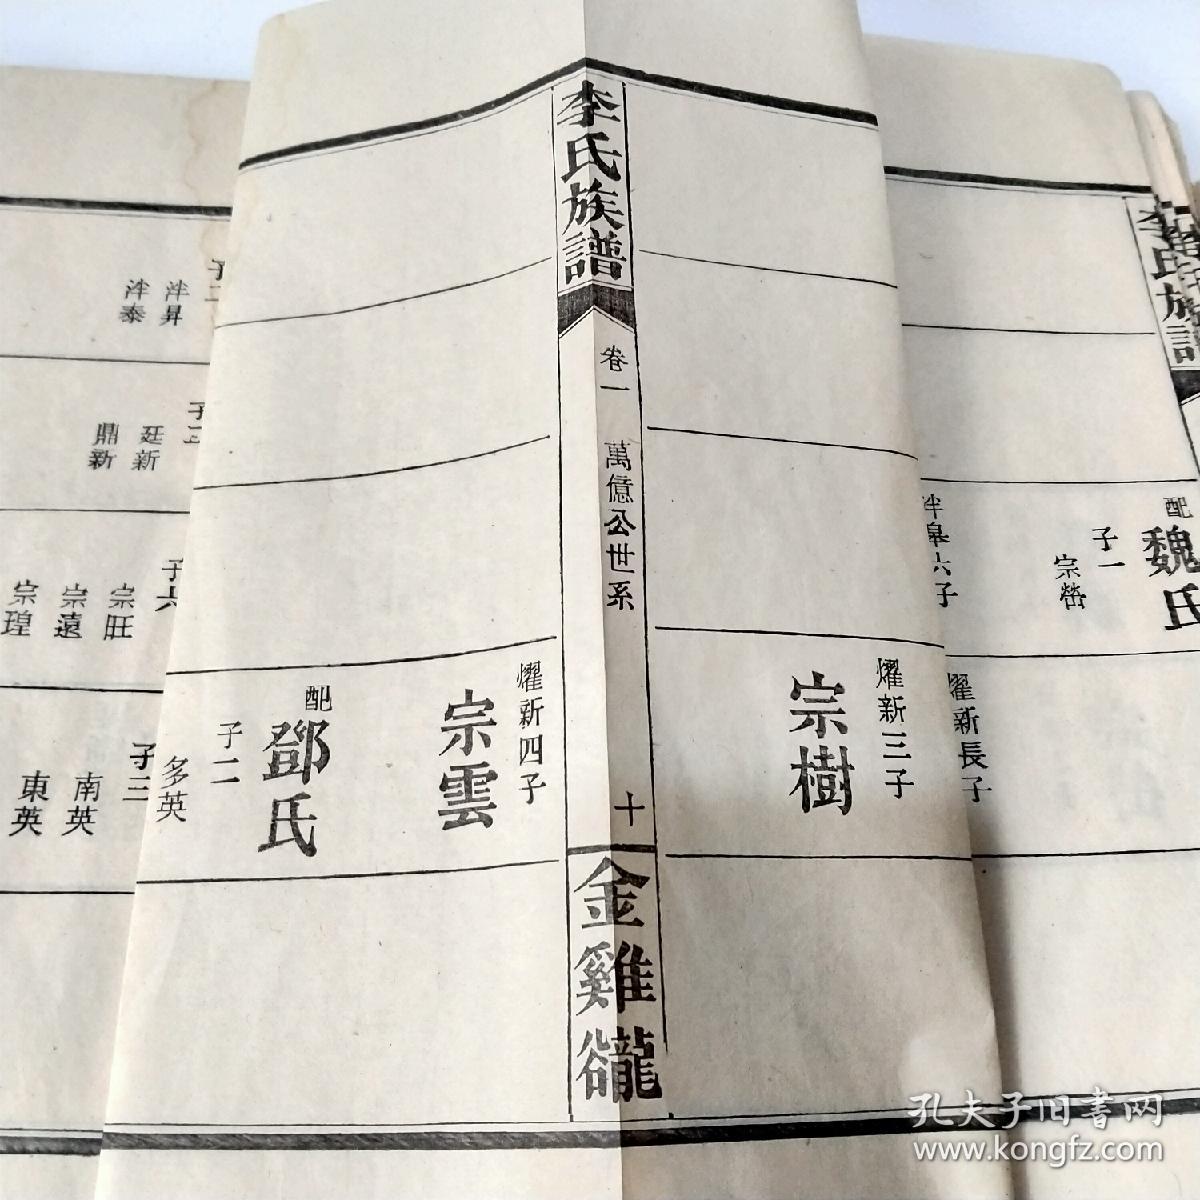 李氏族譜
配
魏氏
子一
宗喾
泮皋六子
燿新長子
燿新三子
宗樹
李氏族譜
卷一
萬億公世系
十
金雞
燿新四子
宗雲
配
鄧氏
子二
多英
泮昇
泮泰
廷新
鼎新
子六
宗旺
宗遠
宗瑝
子三
南英
東英
孔夫子旧书网
www.kongfz.com